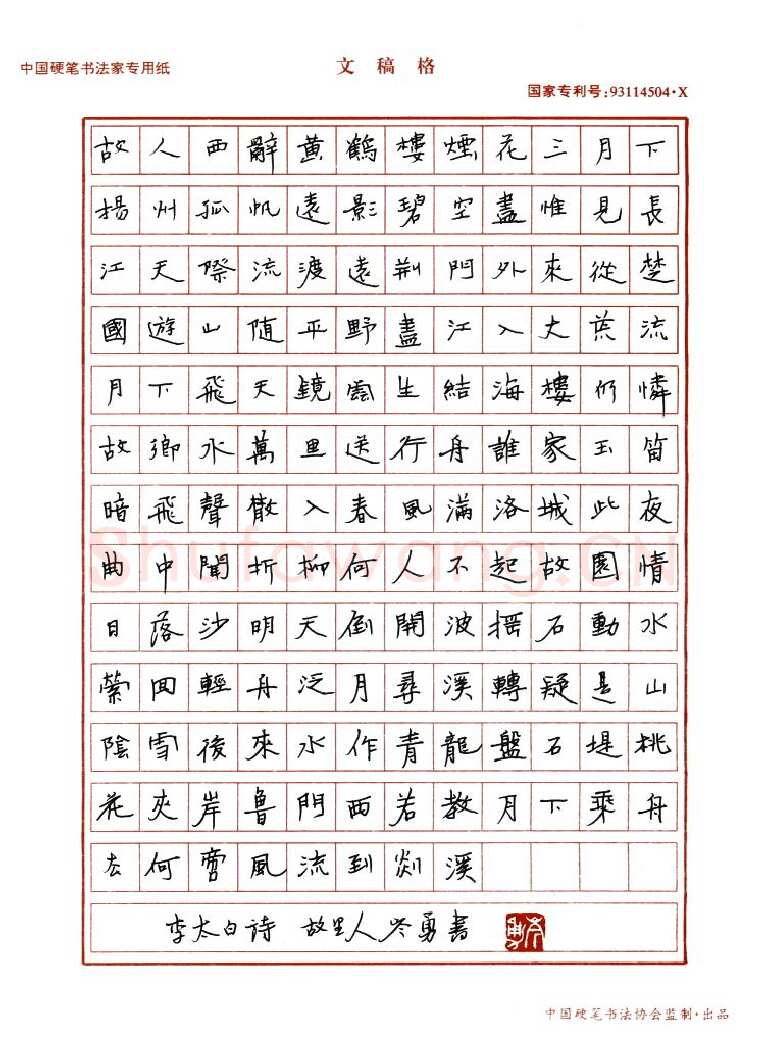 中国硬笔书法家专用纸
文稿格
国家专利号:93114504·X
故人西辭黃鶴樓煙花三月下
揚州孤帆遠影碧空盡惟見長
江天際流渡遠荆門外來從楚
國遊山随平野盡江入大荒流
月下飛天鏡雲生結海樓仍憐
故鄉水萬里送行舟誰家玉笛
暗飛聲散入春風滿洛城此夜
曲中聞折柳何人不起故園情
Shufawang.CN
日落沙明天倒開波摇石動水
縈回輕舟泛月尋溪轉疑是山
陰雪後來水作青龍盤石堤桃
花夾岸魯門西若教月下乘舟
去何啻風流到剡溪
李太白詩 故里人岑勇書
中国硬笔书法协会监制·出品